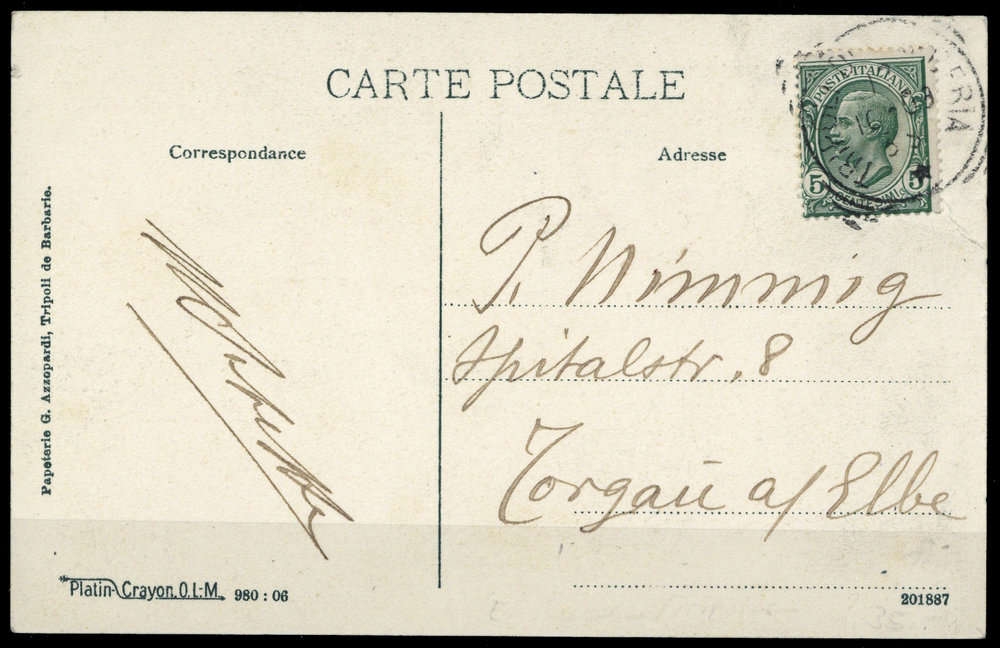 CARTE POSTALE
Correspondance
Adresse
POSTE ITALIANE
5 5
CENTESIMI
BARBERIA
P. Nimmig
Spitalstr. 8
Torgau a/ Elbe
Papeterie G. Azzopardi, Tripoli de Barbarie.
Platin-Crayon. O.L-M. 980 : 06
201887